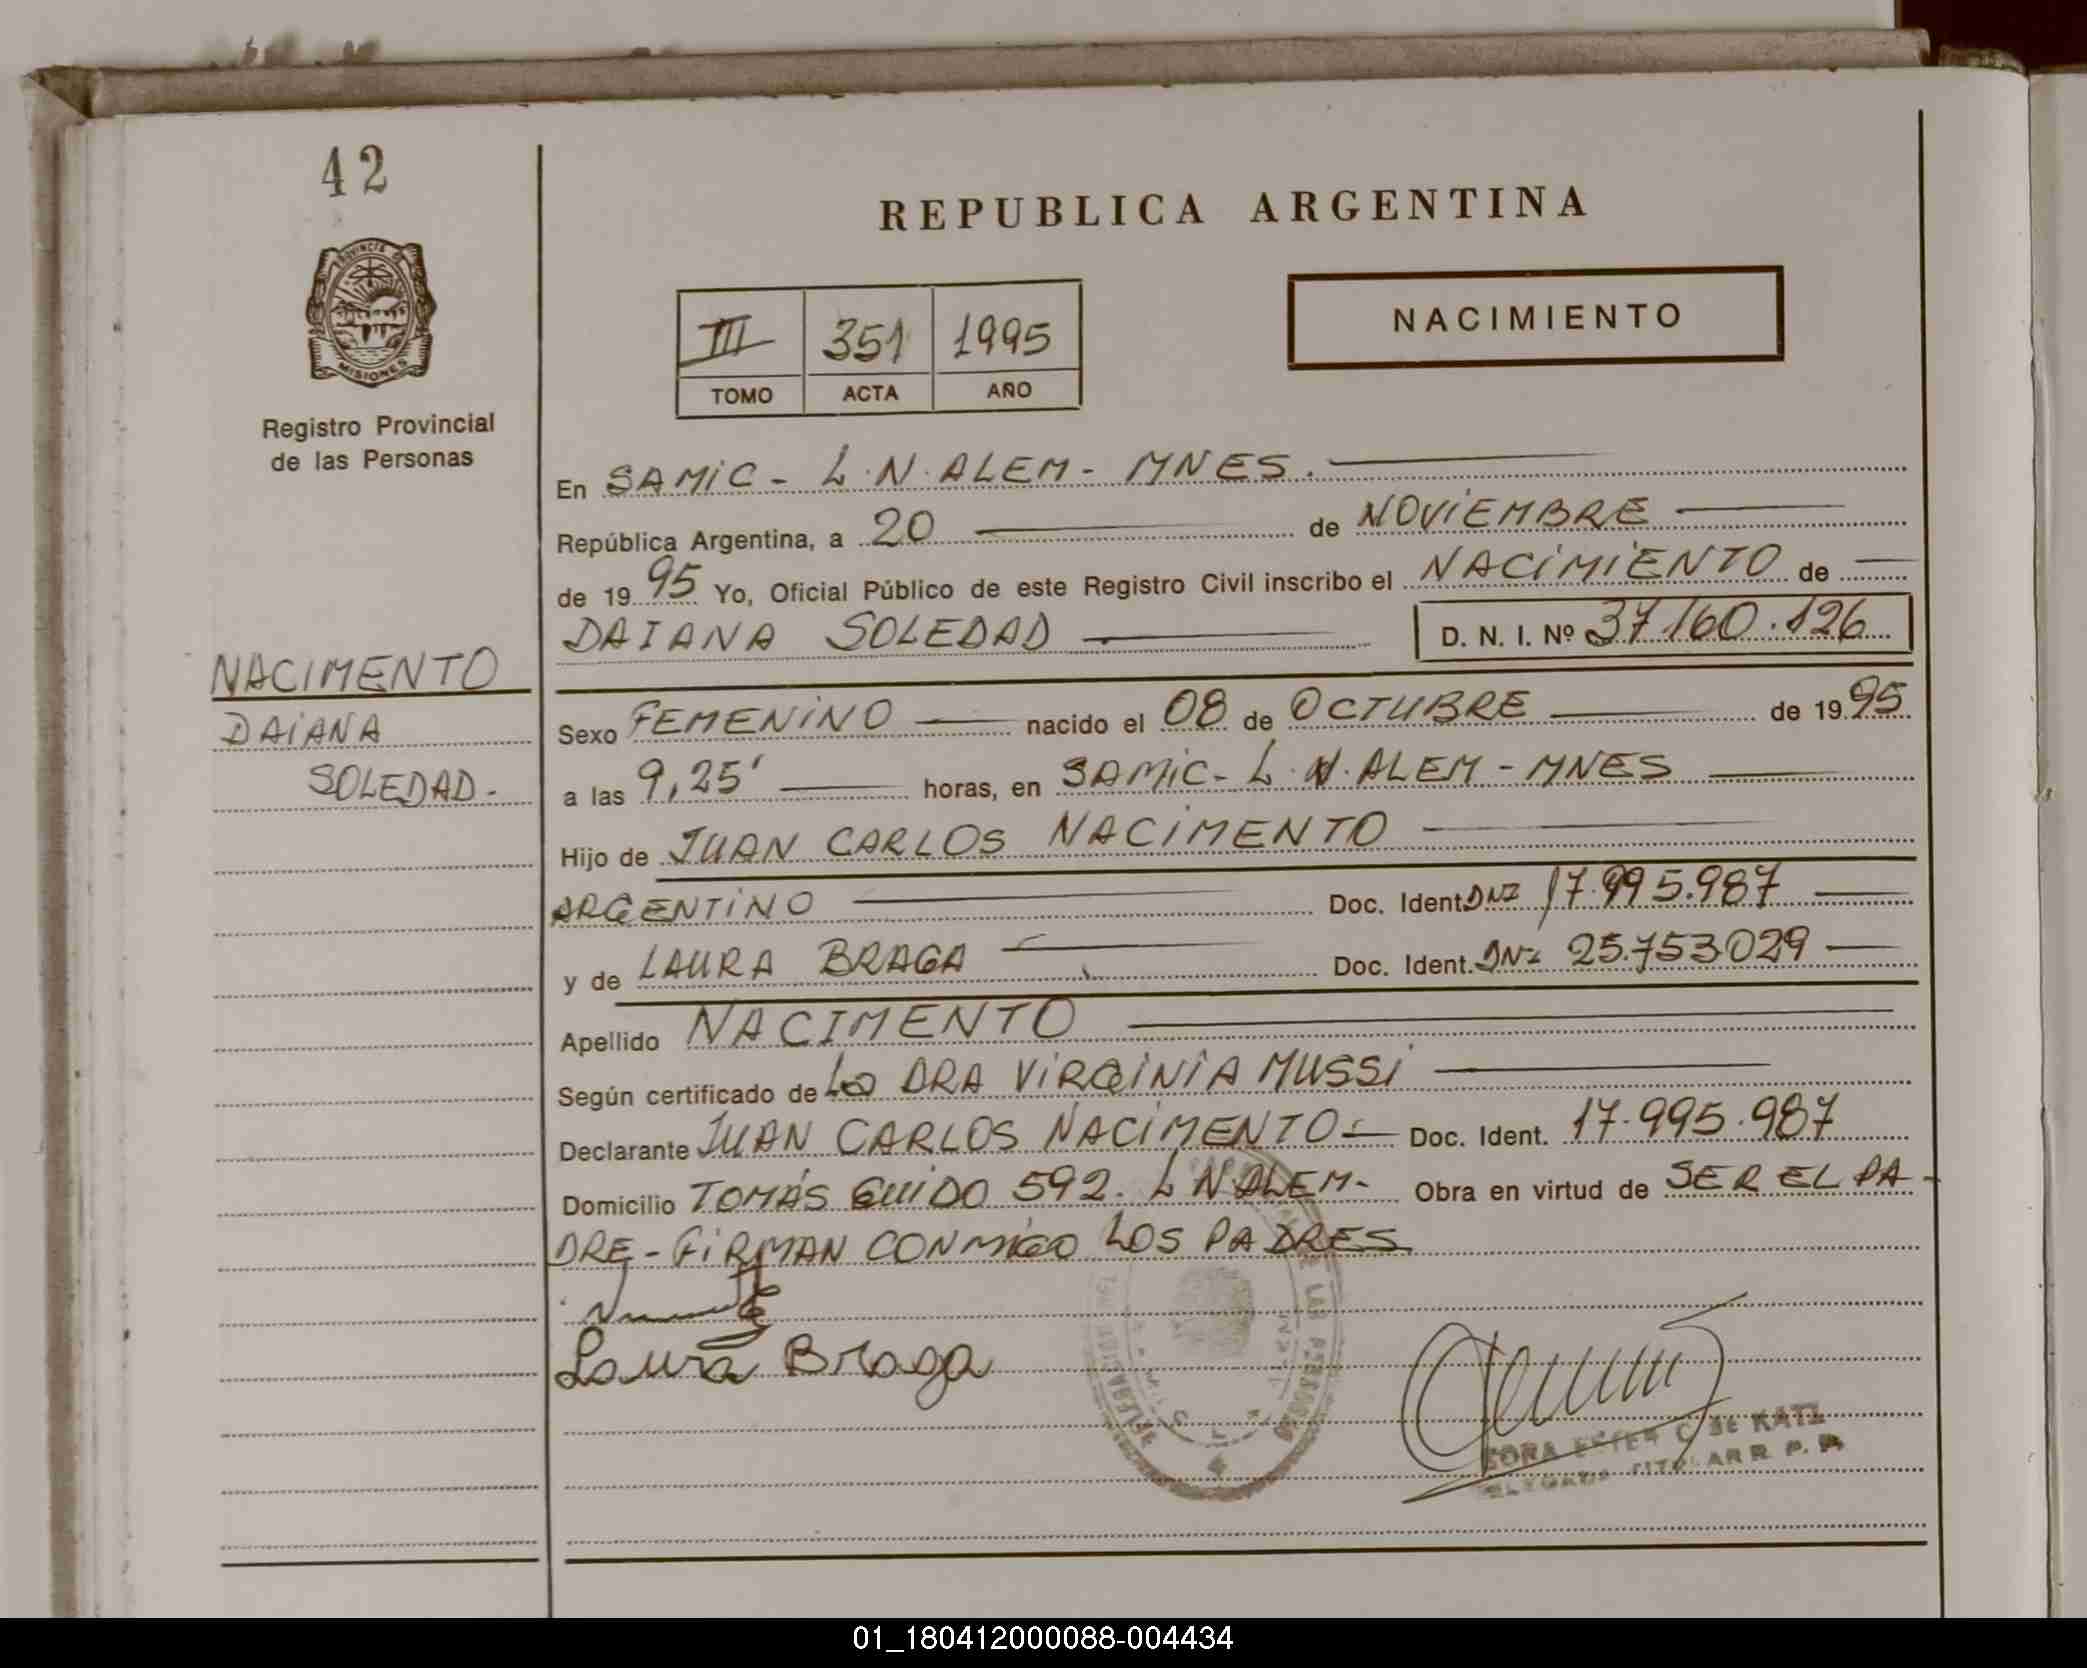 42
REPUBLICA ARGENTINA
PROVINCIA DE
MISIONES
Registro Provincial
de las Personas
III 351 1995
TOMO ACTA AÑO
NACIMIENTO
En SAMIC - L.N. ALEM - MNES.
República Argentina, a 20 de NOVIEMBRE
de 1995 Yo, Oficial Público de este Registro Civil inscribo el NACIMIENTO de
DAIANA SOLEDAD D. N. I. Nº 37160.126
NACIMENTO
DAIANA
SOLEDAD.
Sexo FEMENINO nacido el 08 de OCTUBRE de 1995
a las 9,25' horas, en SAMIC - L.N. ALEM - MNES
Hijo de JUAN CARLOS NACIMENTO
ARGENTINO Doc. Ident. DNI 17.995.987
y de LAURA BRAGA Doc. Ident. DNI 25.753029
Apellido NACIMENTO
Según certificado de La DRA VIRGINIA MUSSI
Declarante JUAN CARLOS NACIMENTO Doc. Ident. 17.995.987
Domicilio TOMÁS GUIDO 592. L N ALEM - Obra en virtud de SER EL PA-
DRE - FIRMAN CONMIGO LOS PADRES
Laura Braga
DE LAS PERSONAS
DE KATZ
TITULAR R. P. P.
01_180412000088-004434